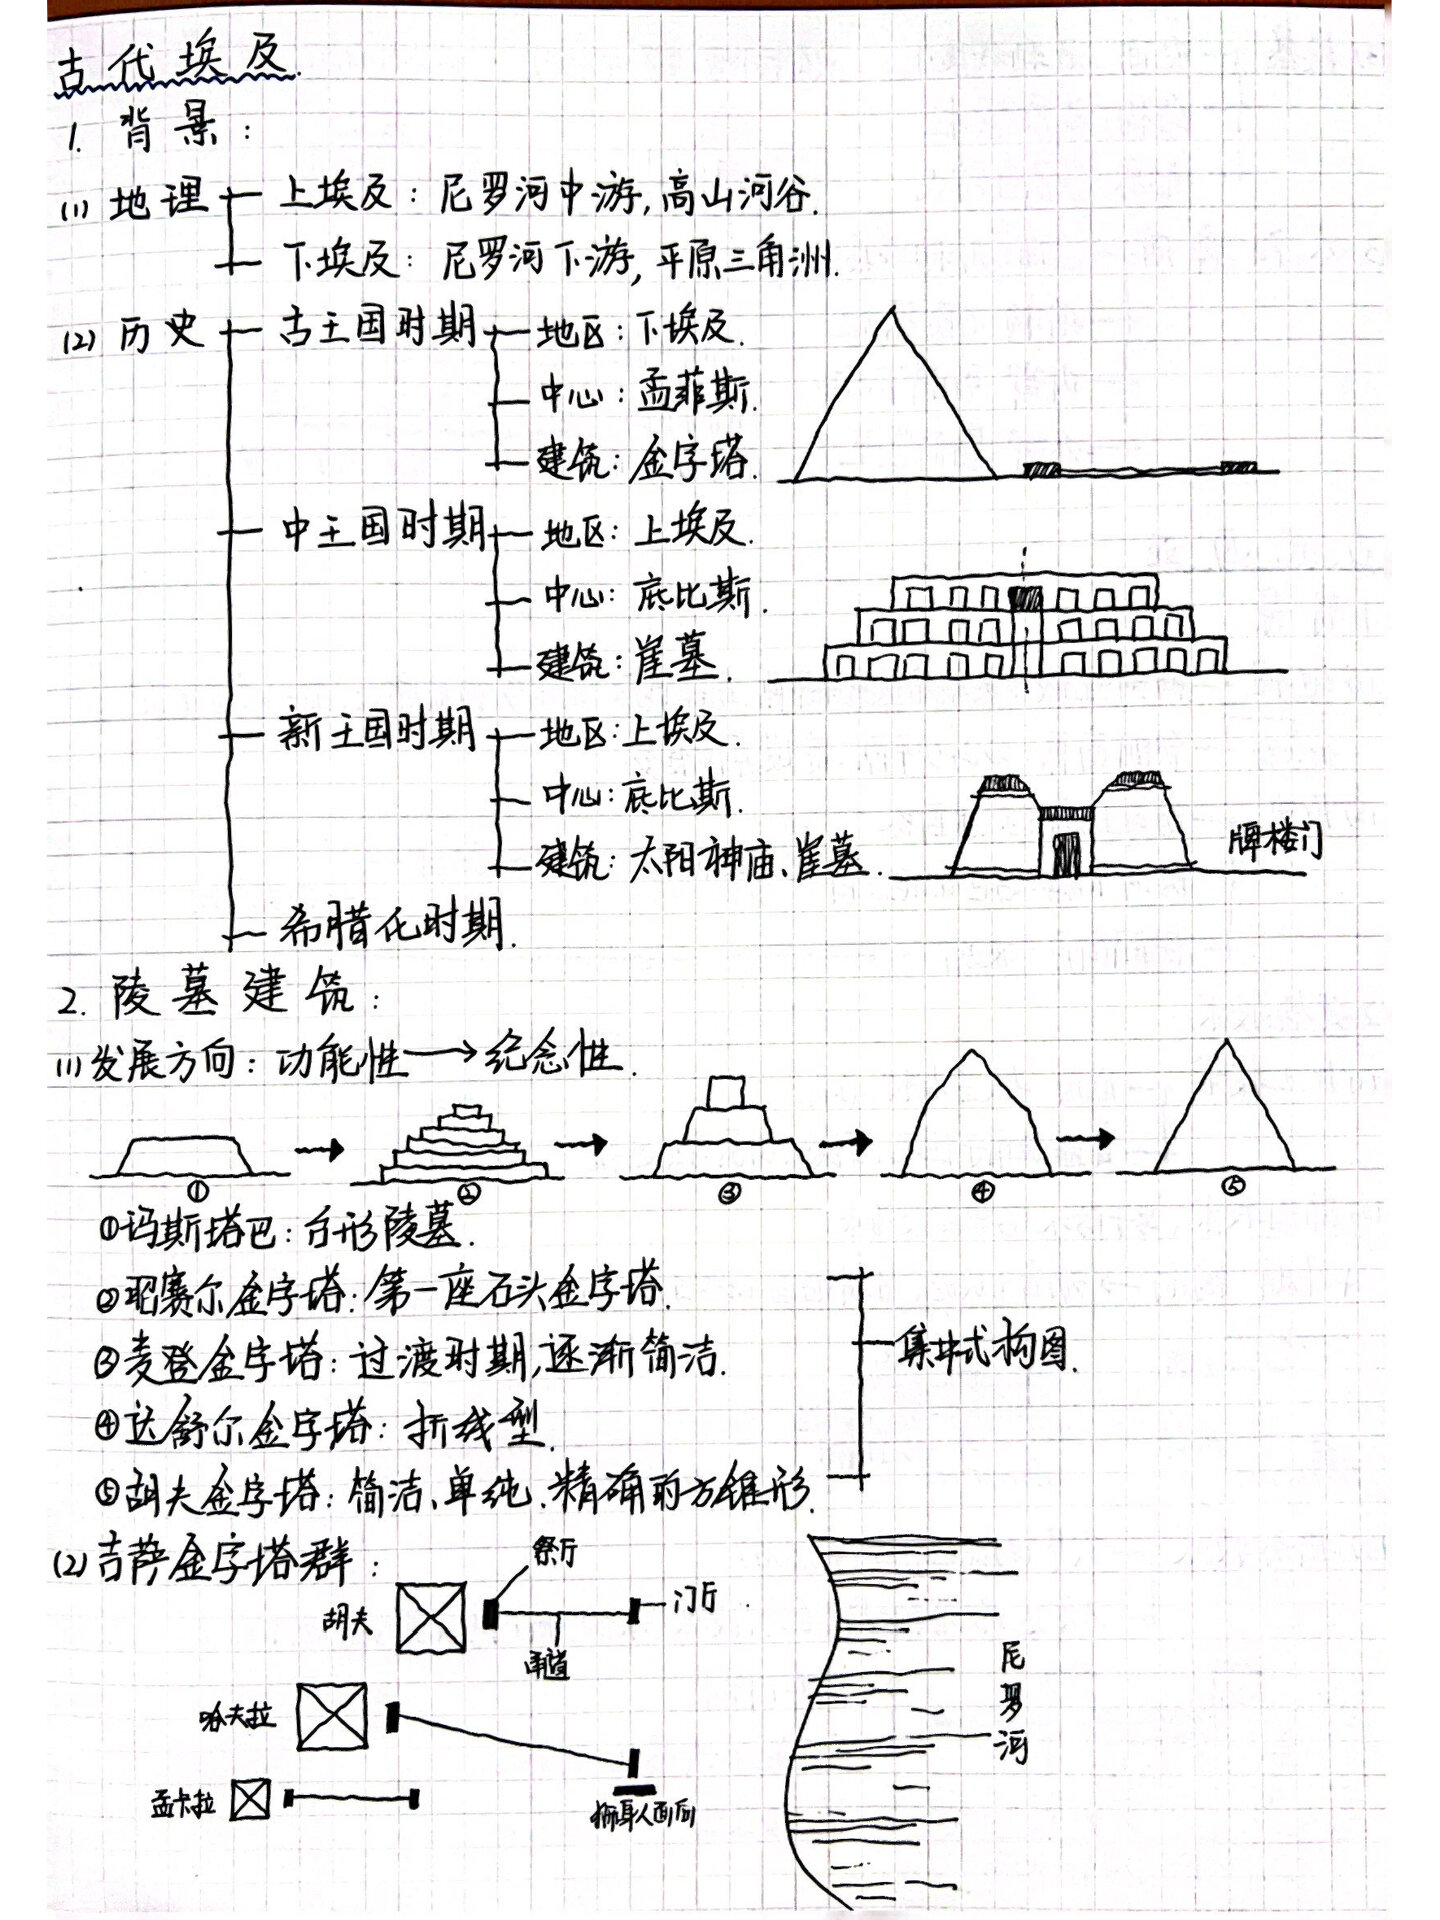 古代埃及.
1. 背景:
(1) 地理 上埃及: 尼罗河中游, 高山河谷.
下埃及: 尼罗河下游, 平原三角洲.
(2) 历史 古王国时期 地区: 下埃及.
中心: 孟菲斯.
建筑: 金字塔.
中王国时期 地区: 上埃及.
中心: 底比斯.
建筑: 崖墓.
新王国时期 地区: 上埃及.
中心: 底比斯.
建筑: 太阳神庙、崖墓.
牌楼门
希腊化时期.
2. 陵墓建筑:
(1) 发展方向: 功能性→纪念性.
→ → → →
① ② ③ ④ ⑤
①玛斯塔巴: 台形陵墓.
②昭赛尔金字塔: 第一座石头金字塔.
③麦登金字塔: 过渡时期, 逐渐简洁.
④达舒尔金字塔: 折线型.
⑤胡夫金字塔: 简洁、单纯、精确的方锥形.
集中式构图.
(2) 吉萨金字塔群:
祭厅
胡夫
门厅
甬道
哈夫拉
孟卡拉
狮身人面像
尼罗河